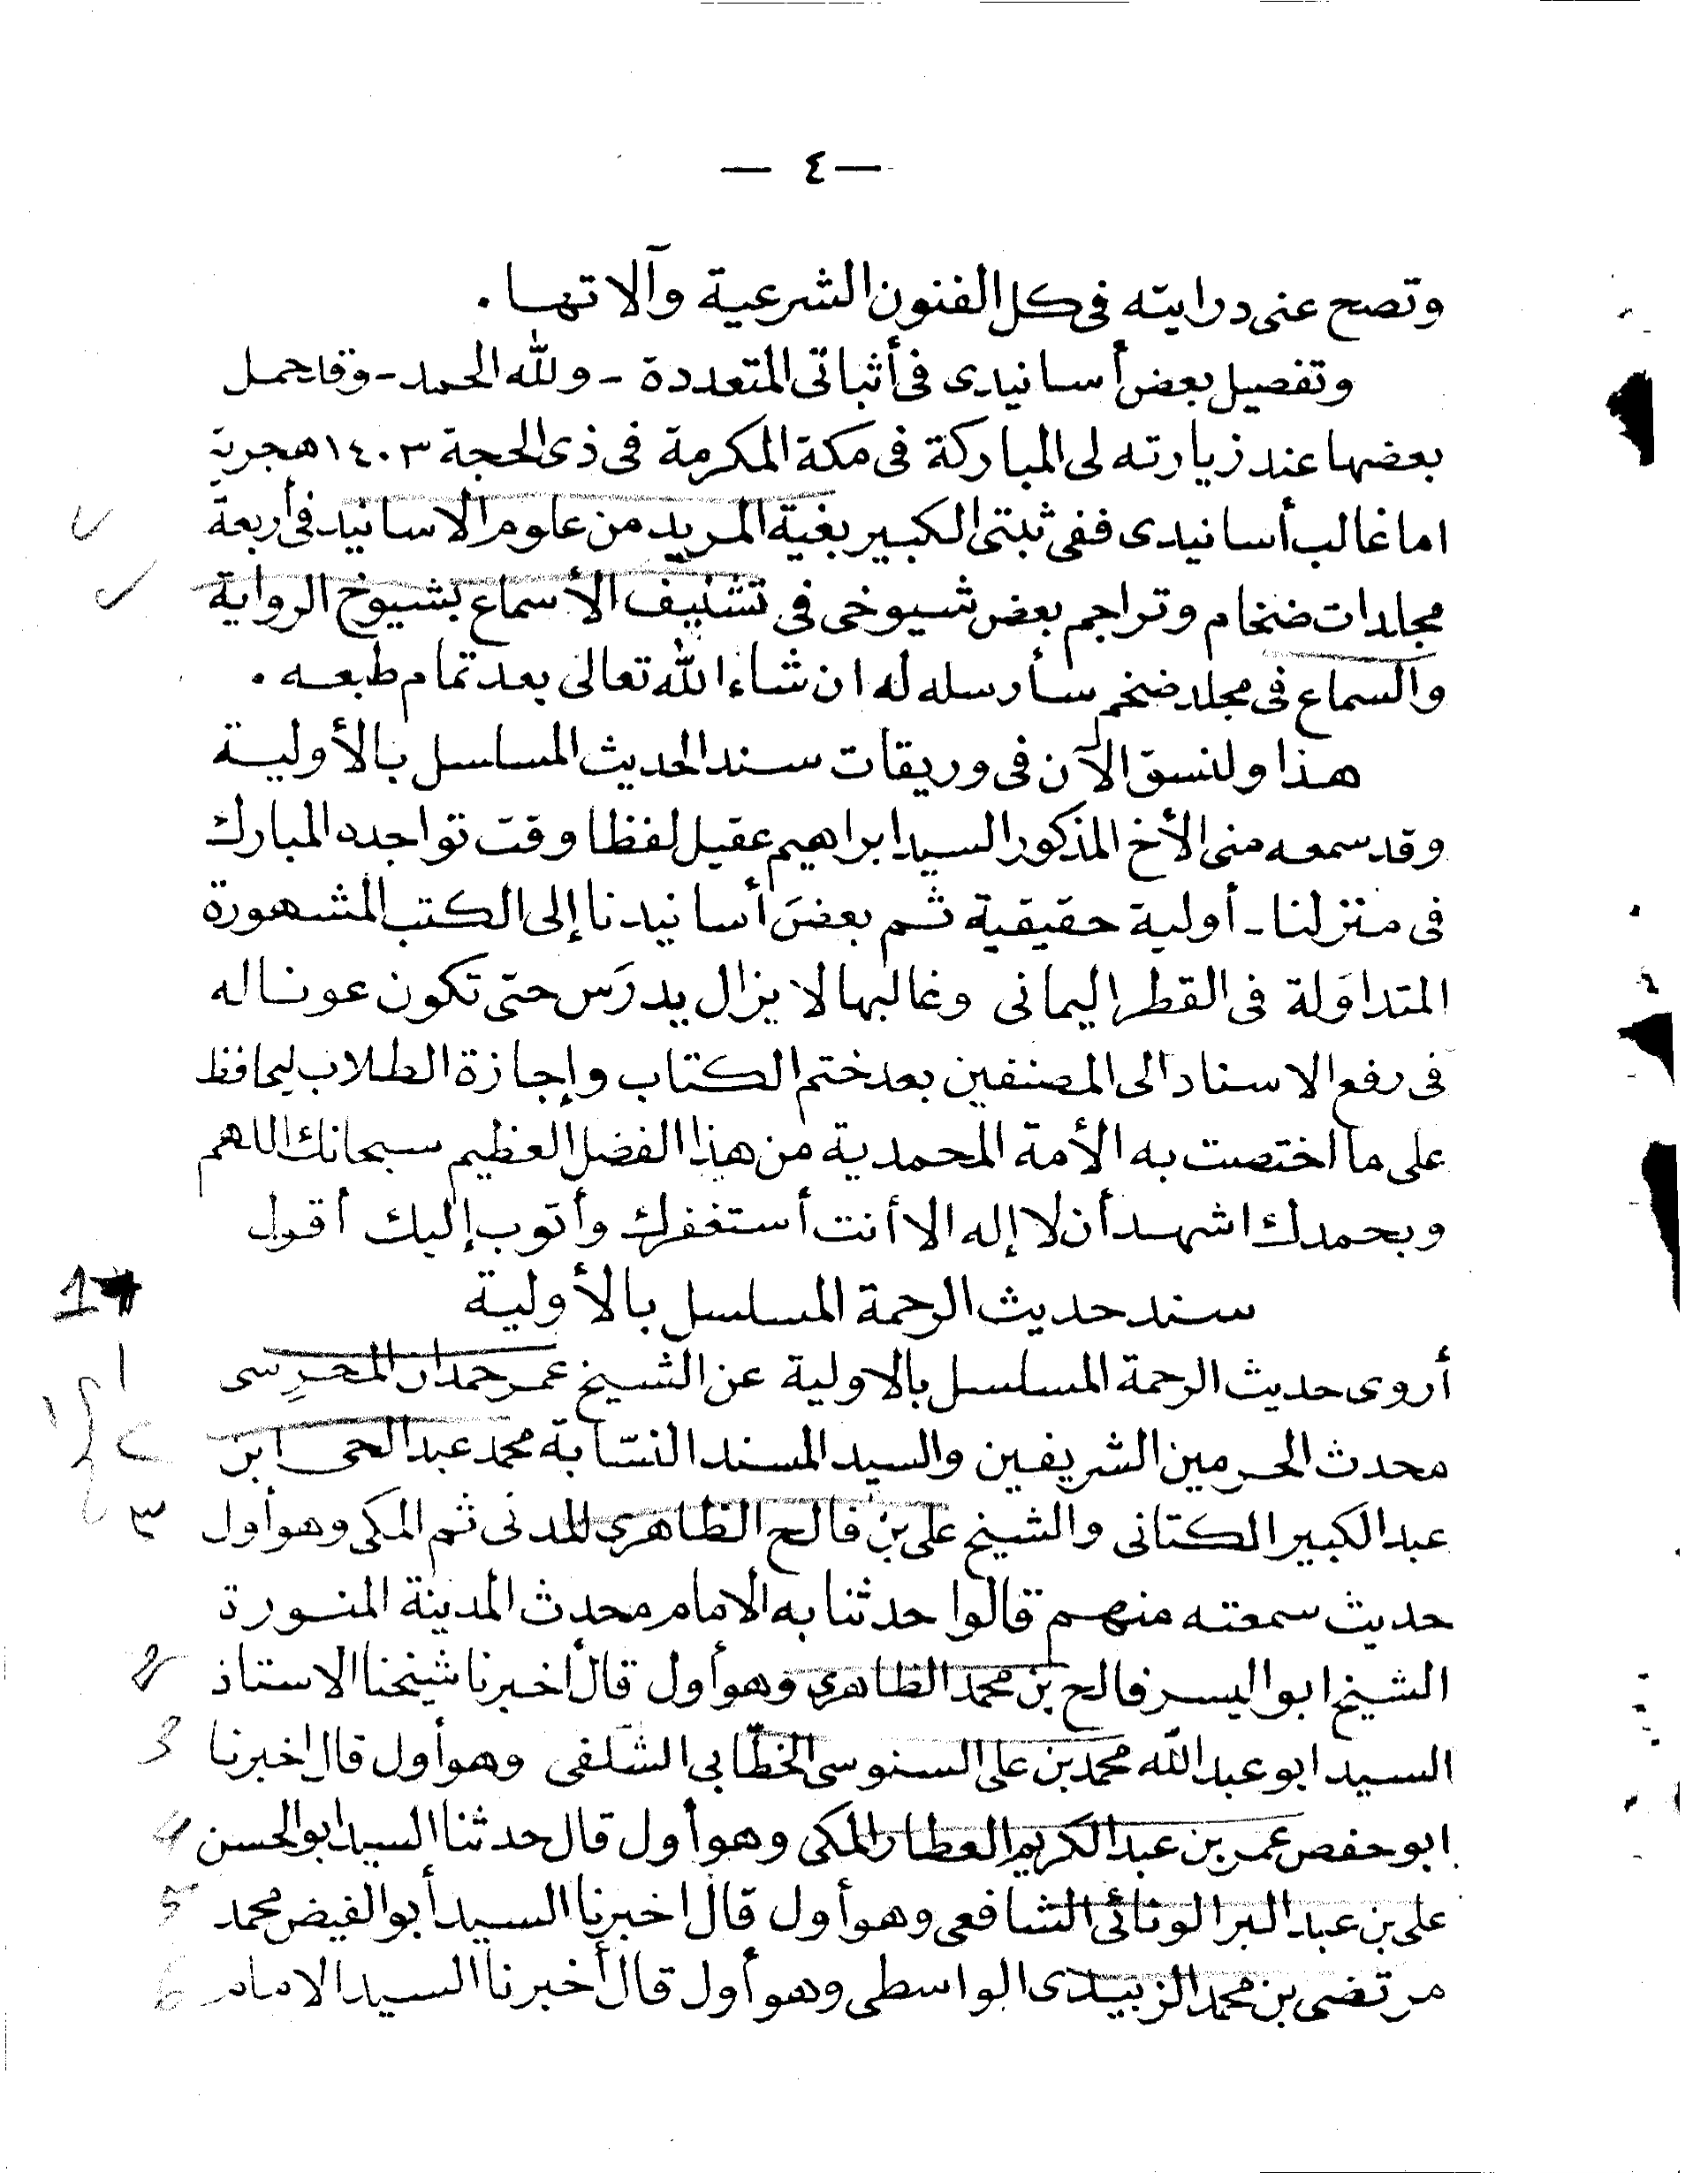 — ٤ —
وتصح عنى درايته فى كل الفنون الشرعية وآلاتها .
وتفصيل بعض أسانيدى فى أثباتى المتعددة - ولله الحمد - وقد حمل
بعضها عند زيارته لى المباركة فى مكة المكرمة فى ذى الحجة ١٤٠٣ هجرية
اما غالب أسانيدى ففى ثبتى الكبير بغية المريد من علوم الاسانيد فى أربعة
مجلدات ضخام وتراجم بعض شيوخى فى تشنيف الأسماع بشيوخ الرواية
والسماع فى مجلد ضخم سأرسله له ان شاء الله تعالى بعد تمام طبعه .
هذا ولنسق الآن فى وريقات سند الحديث المسلسل بالأولية
وقد سمعه منى الأخ المذكور السيد ابراهيم عقيل لفظا وقت تواجده المبارك
فى منزلنا - أولية حقيقية ثم بعضَ أسانيدنا إلى الكتب المشهورة
المتداوَلة فى القطر اليمانى وغالبها لا يزال يدرَس حتى تكون عونا له
فى رفع الاسناد الى المصنفين بعد ختم الكتاب وإجازة الطلاب ليحافظ
على ما اختصت به الأمة المحمدية من هذا الفضل العظيم سبحانك اللهم
وبحمدك اشهد أن لا إله الا أنت أستغفرك وأتوب إليك أقول
سند حديث الرحمة المسلسل بالأولية
1
أروى حديث الرحمة المسلسل بالاولية عن الشيخ عمر حمدان المحرِسى
١
محدث الحرمين الشريفين والسيد المسند النسّابة محمد عبد الحى ابن
٢
عبد الكبير الكتانى والشيخ على بن فالح الظاهرى المدنى ثم المكى وهو أول
٣
حديث سمعته منهم قالوا حدثنا به الامام محدث المدينة المنورة
الشيخ ابو اليسر فالح بن محمد الظاهرى وهو أول قال أخبرنا شيخنا الاستاذ
2
السيد ابو عبد الله محمد بن على السنوسى الخطّابى الشلفى وهو أول قال اخبرنا
3
ابو حفص عمر بن عبد الكريم العطار المكى وهو أول قال حدثنا السيد ابو الحسن
4
على بن عبد البر الونائى الشافعى وهو أول قال اخبرنا السيد أبو الفيض محمد
5
مرتضى بن محمد الزبيدى الواسطى وهو أول قال أخبرنا السيد الامام
6